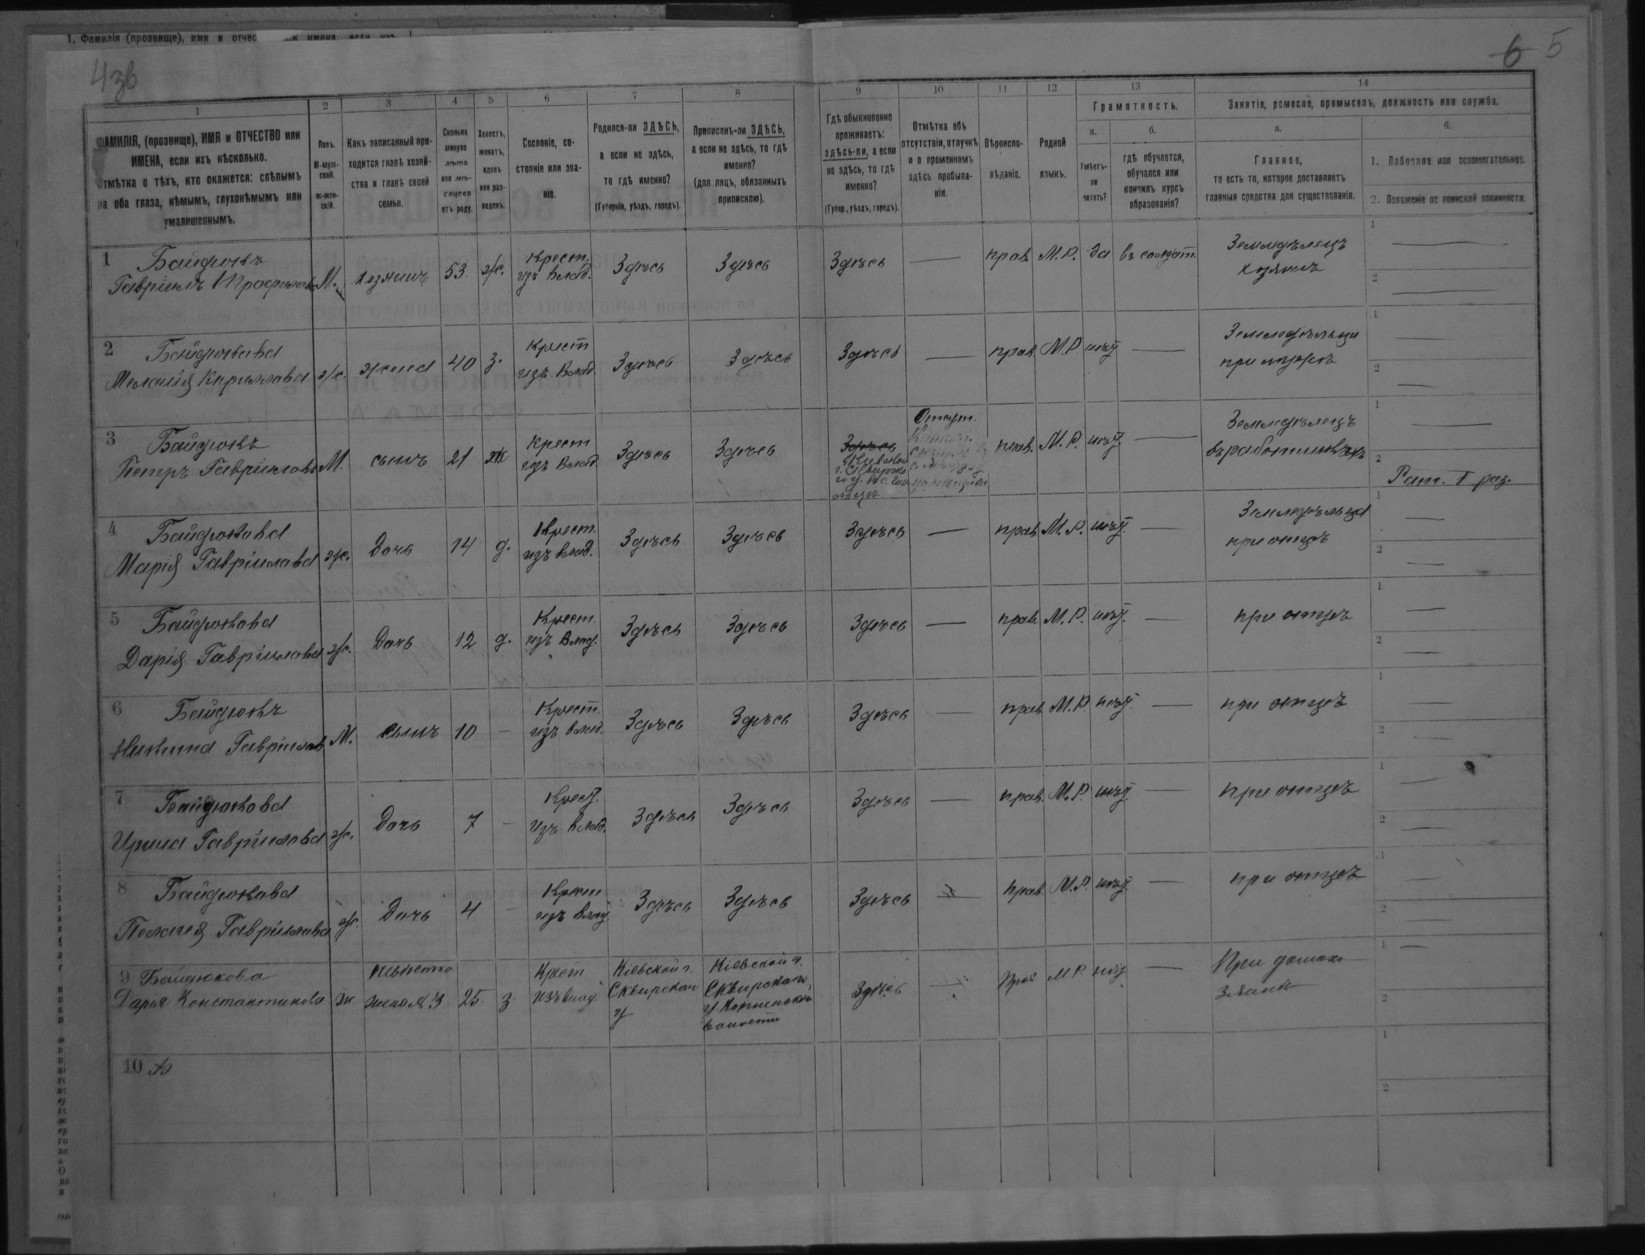 1. Фамилія (прозвище), имя и отчес
43б
6 5
1
2
3
4
5
6
7
8
9
10
11
12
13
14
ФАМИЛІЯ, (прозвище), ИМЯ и ОТЧЕСТВО или
ИМЕНА, если ихъ нѣсколько.
Отмѣтка о тѣхъ, кто окажется: слѣпымъ
на оба глаза, нѣмымъ, глухонѣмымъ или
умалишеннымъ.
Полъ.
М-мужской.
Ж-женскій.
Какъ записанный приходится главѣ хозяйства и главѣ своей семьи.
Сколько минуло лѣтъ или мѣсяцевъ отъ роду.
Холостъ, женатъ, вдовъ или разведенъ.
Сословіе, состояніе или званіе.
Родился-ли ЗДѢСЬ,
а если не здѣсь,
то гдѣ именно?
(Губернія, уѣздъ, городъ).
Приписанъ-ли ЗДѢСЬ,
а если не здѣсь, то гдѣ
именно?
(для лицъ, обязанныхъ
припискою).
Гдѣ обыкновенно
проживаетъ:
здѣсь-ли, а если
не здѣсь, то гдѣ
именно?
(Губер., уѣздъ, городъ).
Отмѣтка объ
отсутствіи, отлучкѣ
и о временномъ
здѣсь пребываніи.
Вѣроисповѣданіе.
Родной
языкъ.
Грамотность.
а.
Умѣетъ-ли читать?
б.
гдѣ обучается,
обучался или
кончилъ курсъ
образованія?
Занятія, ремесло, промыселъ, должность или служба.
а.
Главное,
то есть то, которое доставляетъ
главныя средства для существованія.
б.
1. Побочное или вспомогательное.
2. Положеніе по воинской повинности.
1 Байдюкъ
Гавріилъ Трофимовъ М. хозяинъ 53 ж. Крест. изъ влад. Здѣсь Здѣсь Здѣсь — прав. М.Р. да въ солдат. Земледѣлецъ хозяинъ
2 Байдюкова
Меланія Кириллова ж. жена 40 з. Крест изъ влад. Здѣсь Здѣсь Здѣсь — прав. М.Р. нѣтъ — Земледѣлица при мужѣ
3 Байдюкъ
Петръ Гавріиловъ М. сынъ 21 ж Крест изъ влад. Здѣсь Здѣсь Здѣсь Кіевской г. Сквирского у. Отсут. прав. М.Р. нѣтъ — Земледѣлецъ въ работникахъ
Рат. I раз.
4 Байдюкова
Марія Гавріилова ж. Дочь 14 д. Крест. изъ влад. Здѣсь Здѣсь Здѣсь — прав. М.Р. нѣтъ — Земледѣлица при отцѣ
5 Байдюкова
Дарія Гавріилова ж. Дочь 12 д. Крест. изъ влад. Здѣсь Здѣсь Здѣсь — прав. М.Р. нѣтъ — при отцѣ
6 Байдюкъ
Никита Гавріиловъ М. сынъ 10 — Крест. изъ влад. Здѣсь Здѣсь Здѣсь — прав. М.Р. нѣтъ — при отцѣ
7 Байдюкова
Ирина Гавріилова ж. Дочь 7 — Крест. изъ влад. Здѣсь Здѣсь Здѣсь — прав. М.Р. нѣтъ — при отцѣ
8 Байдюкова
Пелагія Гавріилова ж. Дочь 4 — Крест изъ влад. Здѣсь Здѣсь Здѣсь — прав. М.Р. нѣтъ — при отцѣ
9 Байдюкова
Дарія Константинова ж невѣстка жена №3 25 з Крест изъ влад. Кіевской г. Сквирского у Кіевской г. Сквирского у. волости Здѣсь — Прав М Р нѣтъ — При
10